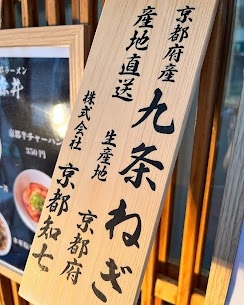 京都府産
九条ねぎ
産地直送
生産地
京都府
株式会社
京都知七
京都牛チャーハン
350円